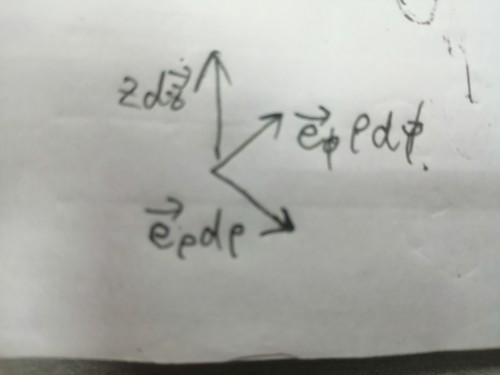 z d\vec{z}
\vec{e}_ϕ ρ dϕ.
\vec{e}_ρ dρ